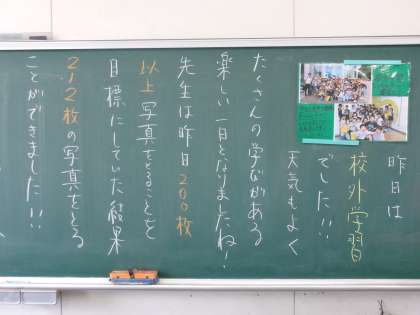 昨日は
校外学習
でした!!
天気もよく
たくさんの学びがある
楽しい一日となりましたね!
先生は昨日200枚
以上写真をとることを
目標にしていた結果
212枚の写真をとる
ことができました!!